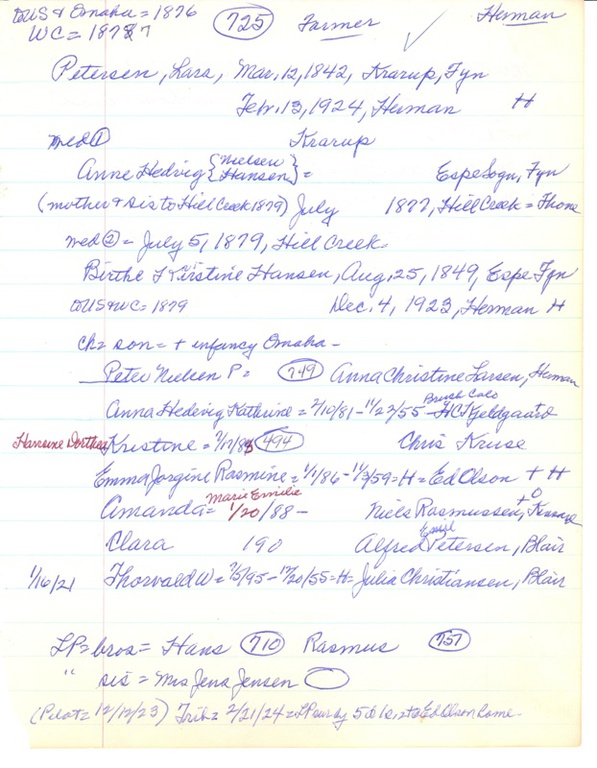 →US & Omaha = 1876 (725) Farmer ✓ Herman
WC = 1877
Petersen, Lars, Mar, 12, 1842, Krarup, Fyn
Febr. 13, 1924, Herman H
med ① Krarup
Anne Hedvig {Nielsen Hansen} = Espe Sogn, Fyn
(mother & sis to Hill Creek 1879) July 1877, Hill Creek =
med ② = July 5, 1879, Hill Creek
Birthe Kirstine Hansen, Aug, 25, 1849, Espe Fyn
→US & WC = 1879 Dec. 4, 1923, Herman H
Ch = son = + infancy Omaha -
Peter Nielsen P = (749) Anna Christine Larsen, Herman
Anna Hedevig Kathrine = 2/10/81 - 11/22/55 - Brush Colo HC Kjeldgaard
Hansine Dorthea Kristine = (494) Chris Kruse
Emma Jorgine Rasmine = 1/1/86 - 11/3/59 = H = Ed Olson + H
Amanda = Marie Emilie 1/20/88 - Niels Rasmussen, + O
Clara 190 Alfred Emil Petersen, Blair
1/16/21 Thorvald W = 7/5/95 - 12/20/55 = H = Julia Christiansen, Blair
LP = bros = Hans (710) Rasmus (757)
" sis = Mrs Jens Jensen
(Pilot = 12/12/23) Trib = 2/21/24 = LP Ed Olson home.